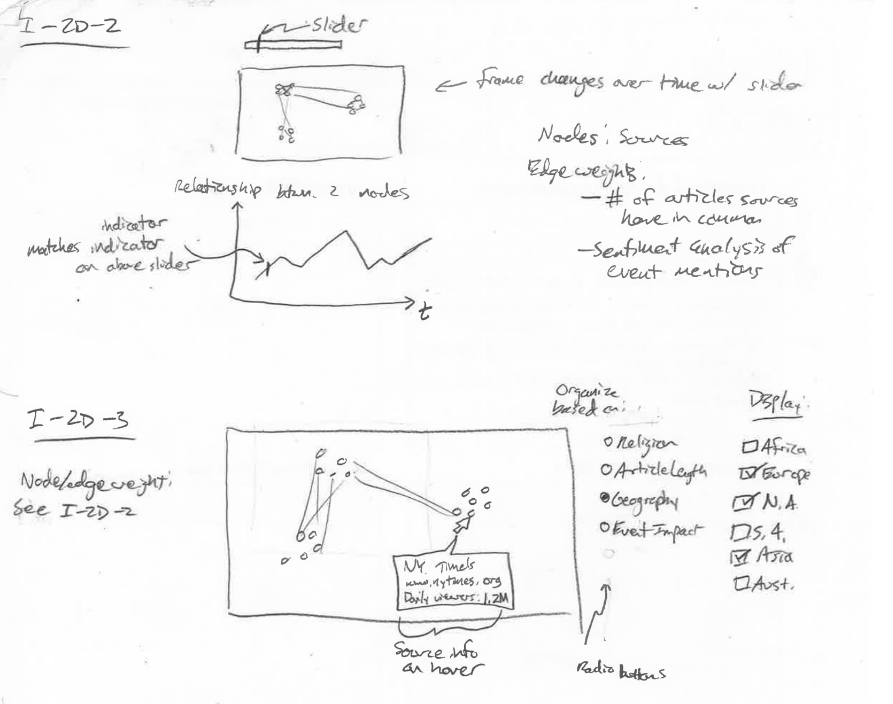 I-2D-2
slider
← frame changes over time w/ slider
Nodes: Sources
Edge weights:
- # of articles sources
have in common
- Sentiment analysis of
event mentions
Relationship btwn. 2 nodes
indicator
matches indicator
on above slider
t
I-2D-3
Node/edge weight:
See I-2D-2
Organize
based on:
Religion
Article Length
Geography
Event Impact
Display:
Africa
Europe
N.A.
S.A.
Asia
Aust.
N.Y. Times
www.nytimes.org
Daily viewers: 1.2M
Source info
on hover
Radio buttons